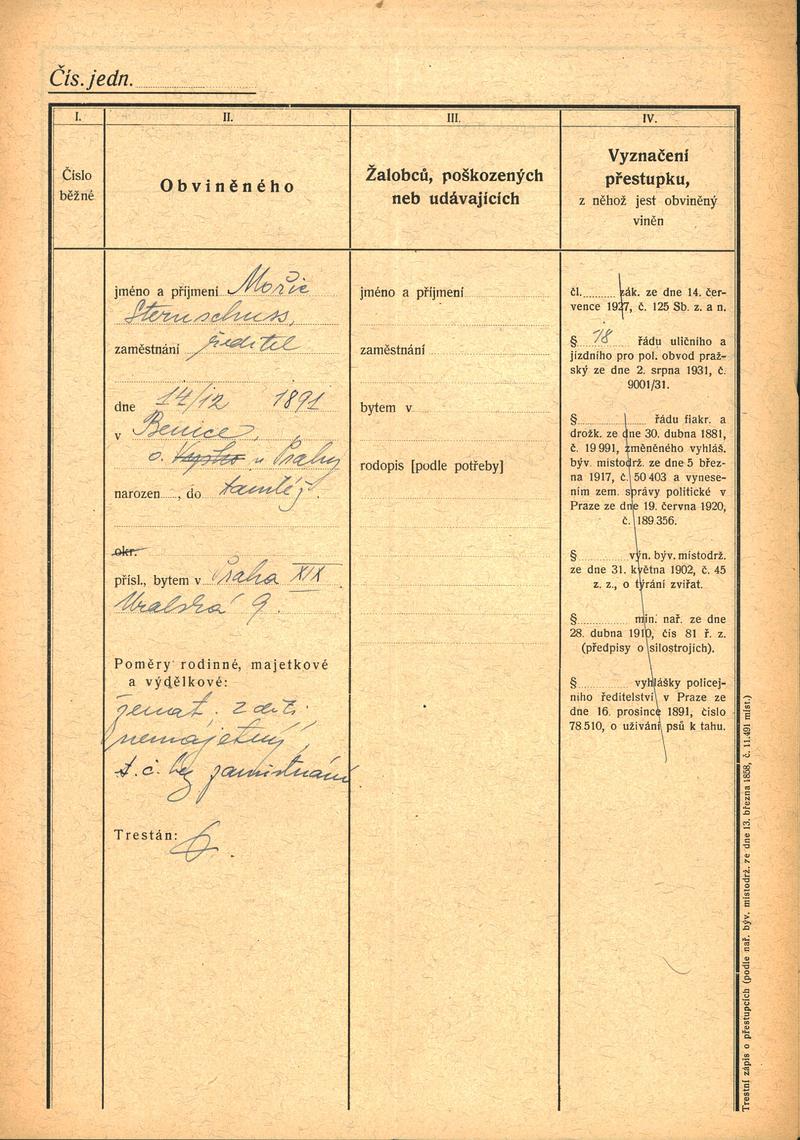 Čís. jedn.
I.
Číslo
běžné
II.
Obviněného
III.
Žalobců, poškozených
neb udávajících
IV.
Vyznačení
přestupku,
z něhož jest obviněný
viněn
jméno a příjmení Mořic
Sternschuss,
zaměstnání ředitel
dne 14/12 1891
v Benice,
o. u Prahy
narozen, do tamtéž.
okr.
přísl., bytem v Praha XIX
Uralská 9.
Poměry rodinné, majetkové
a výdělkové:
ženat. 2 děti.
nemajetný,
t. č. bez zaměstnání
Trestán:
jméno a příjmení
zaměstnání
bytem v
rodopis [podle potřeby]
čl. zák. ze dne 14. čer-
vence 1927, č. 125 Sb. z. a n.
§ 18 řádu uličního a
jízdního pro pol. obvod praž-
ský ze dne 2. srpna 1931, č.
9001/31.
§ řádu fiakr. a
drožk. ze dne 30. dubna 1881,
č. 19 991, změněného vyhláš.
býv. místodrž. ze dne 5 břez-
na 1917, č. 50 403 a vynese-
ním zem. správy politické v
Praze ze dne 19. června 1920,
č. 189 356.
§ výn. býv. místodrž.
ze dne 31. května 1902, č. 45
z. z., o týrání zvířat.
§ min. nař. ze dne
28. dubna 1910, čís 81 ř. z.
(předpisy o silostrojích).
§ vyhlášky policej-
ního ředitelství v Praze ze
dne 16. prosince 1891, číslo
78 510, o užívání psů k tahu.
Trestní zápis o přestupcích (podle nař. býv. místodrž. ze dne 13. března 1858, č. 11.491 míst.)